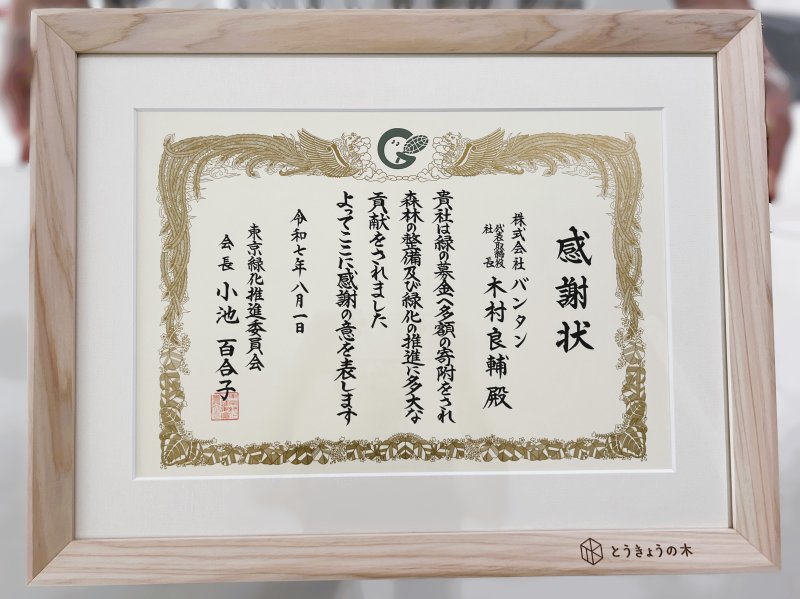 感謝状
株式会社 バンタン
代表取締役
社長
木村良輔 殿
貴社は緑の募金へ多額の寄附をされ
森林の整備及び緑化の推進に多大な
貢献をされました
よってここに感謝の意を表します
令和七年 八月一日
東京緑化推進委員会
会長 小池 百合子
とうきょうの木